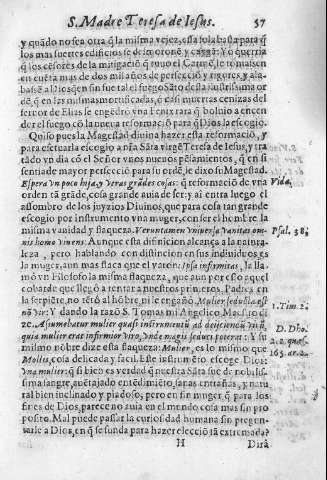 S. Madre Teresa de Iesus. 57
y quãdo no sea otra q̃ la misma vejez, esta sola basta para q̃
los mas fuertes edificios se desmoronẽ y caygã: Yo querria
q̃ los cẽsores de la mitigaciõ q̃ tuuo el Carmẽ, le tomassen
en cuẽta mas de dos mil años de perfecciõ y rigores, y ala-
bassẽ a Dios q̃ en sin fuet al el fuego Sãto desta
dẽ, q̃ en las mismas mortificadas, ò casi muertas cenizas del
feruor de Elias se engẽdrò vna Fenix para q̃ boluio a encen
der el fuego cõ la nueua reformaciõ para q̃ Dios la escogio.
Quiso pues la Magestad diuina hazer esta reformaciõ, y
para efetuarla escogio a nr̃a Sãta virgẽ Teresa de Iesus, y tra
tado vn dia cõ el Señor vnos nueuos pẽsamientos, q̃ en si
sentia de mayor perfecciõ para su ordẽ, le dixo su Magestad.
Espera vn poco hija, y veras grãdes cosas: q̃ reformaciõ de vna Vida.
orden tã grãde, cosa grande auia de ser: y ai entra luego el
assombro de los juyzios Diuinos, que para cosa tan grande
escogio por instrumento vna muger, con ser el hombre la
misma vanidad y flaqueza. Veruntamen vniuersa vanitas om- Psal. 38.
nis homo viuens. Aunque esta difinicion alcança a la natura-
leza, pero hablando con distincion en sus indiuiduos, es
la muger aun mas flaca que el varon: Ipsa infirmitas, la lla-
mò vn Filosofo la misma flaqueza, que aun por esso aquel
cobarde que llegò a tentar a nuestros primeros Padres en
la serpiẽte, no tẽtò al hõbre ni le engañò. Mulier seducta est
nõ vir: Y dando la razõ S. Tomas mi Angelico Maestro di- 1. Tim. 2.
ze. Assumebatur mulier quasi instrumentũ ad deijciendũ virũ, D. Tho.
quia mulier erat infirmior viro, vnde magis seduci poterat: Y su 2. 2. quæst.
mismo nõbre dize esta flaqueza: Mulier, es lo mismo que 165. ar. 2.
Mollis, cosa delicada y facil. Este instrumẽto escoge Dios:
Vna muger: q̃ si bien es verdad q̃ nuestra Sãta fue de nobilis-
sima sangre, auẽtajado entẽdimiẽto, sanas entrañas, y natu-
ral bien inclinado y piadoso, pero en fin muger, q̃ para los
fines de Dios, parece no auia en el mundo cosa mas sin pro
posito. Mal puede passar la curiosidad humana sin pregun-
tarle a Dios, en q̃ se funda para hazer elecciõ tã estremada?
H Dirà